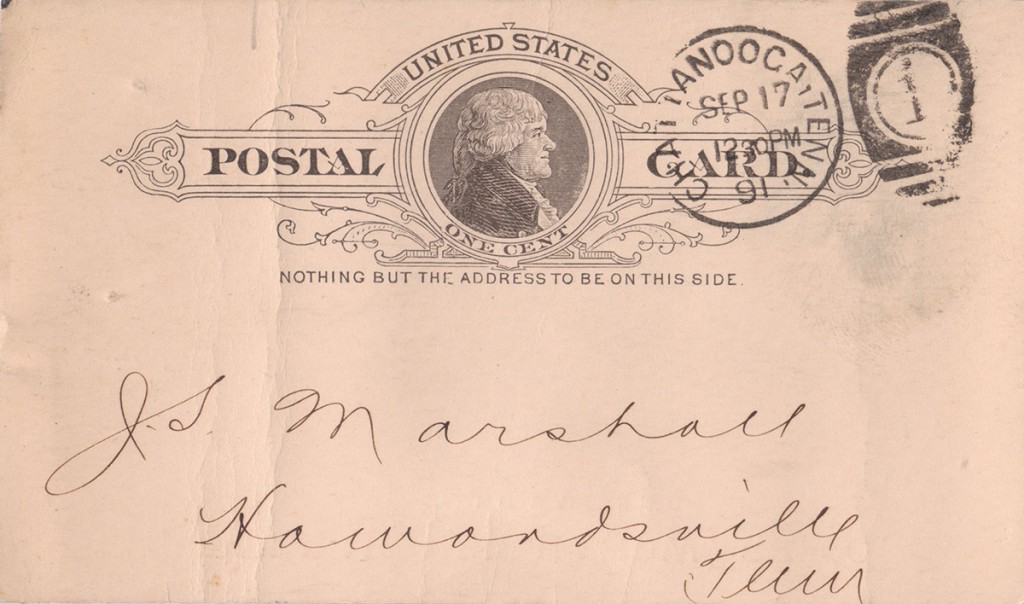 UNITED STATES
POSTAL CARD
ONE CENT
NOTHING BUT THE ADDRESS TO BE ON THIS SIDE.
CHATTANOOGA, TENN.
SEP 17
12 30 PM
91
1
J. S. Marshall
Howardsville
Tenn